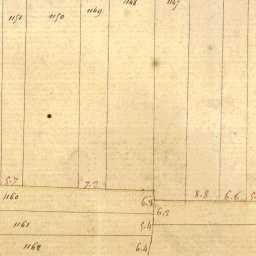 1151 1150 1149 1148 1147
5.7 7.2 8.8 6.6
1160 6.3
6.2
1161 5.4
1162 6.4